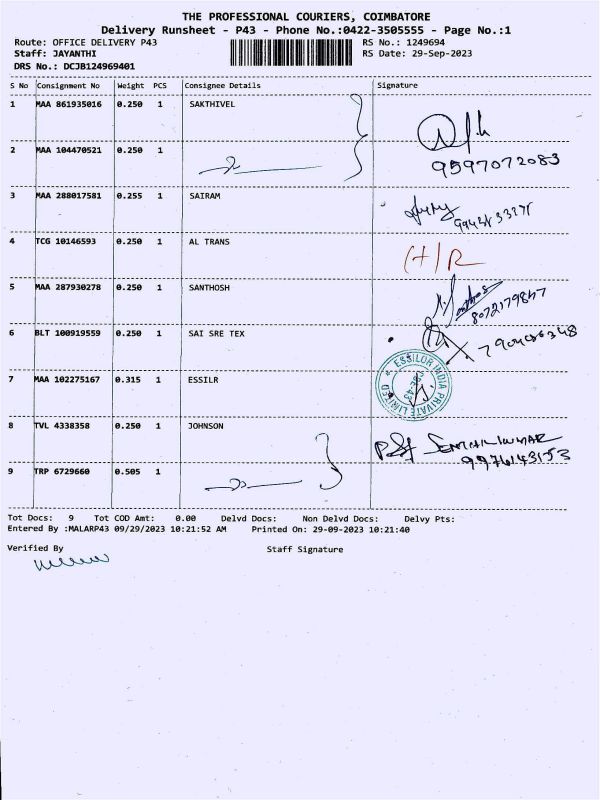 THE PROFESSIONAL COURIERS, COIMBATORE
Delivery Runsheet - P43 - Phone No.:0422-3505555 - Page No.:1
Route: OFFICE DELIVERY P43 RS No.: 1249694
Staff: JAYANTHI RS Date: 29-Sep-2023
DRS No.: DCJB124969401
S No Consignment No Weight PCS Consignee Details Signature
1 MAA 861935016 0.250 1 SAKTHIVEL
2 MAA 104470521 0.250 1 9597072083
3 MAA 288017581 0.255 1 SAIRAM
4 TCG 10146593 0.250 1 AL TRANS (H)R
5 MAA 287930278 0.250 1 SANTHOSH
8072179847
6 BLT 100919559 0.250 1 SAI SRE TEX
7 MAA 102275167 0.315 1 ESSILR ESSILOR INDIA PRIVATE LIMITED
8 TVL 4338358 0.250 1 JOHNSON
9976143153
9 TRP 6729660 0.505 1
Tot Docs: 9 Tot COD Amt: 0.00 Delvd Docs: Non Delvd Docs: Delvy Pts:
Entered By :MALARP43 09/29/2023 10:21:52 AM Printed On: 29-09-2023 10:21:40
Verified By Staff Signature